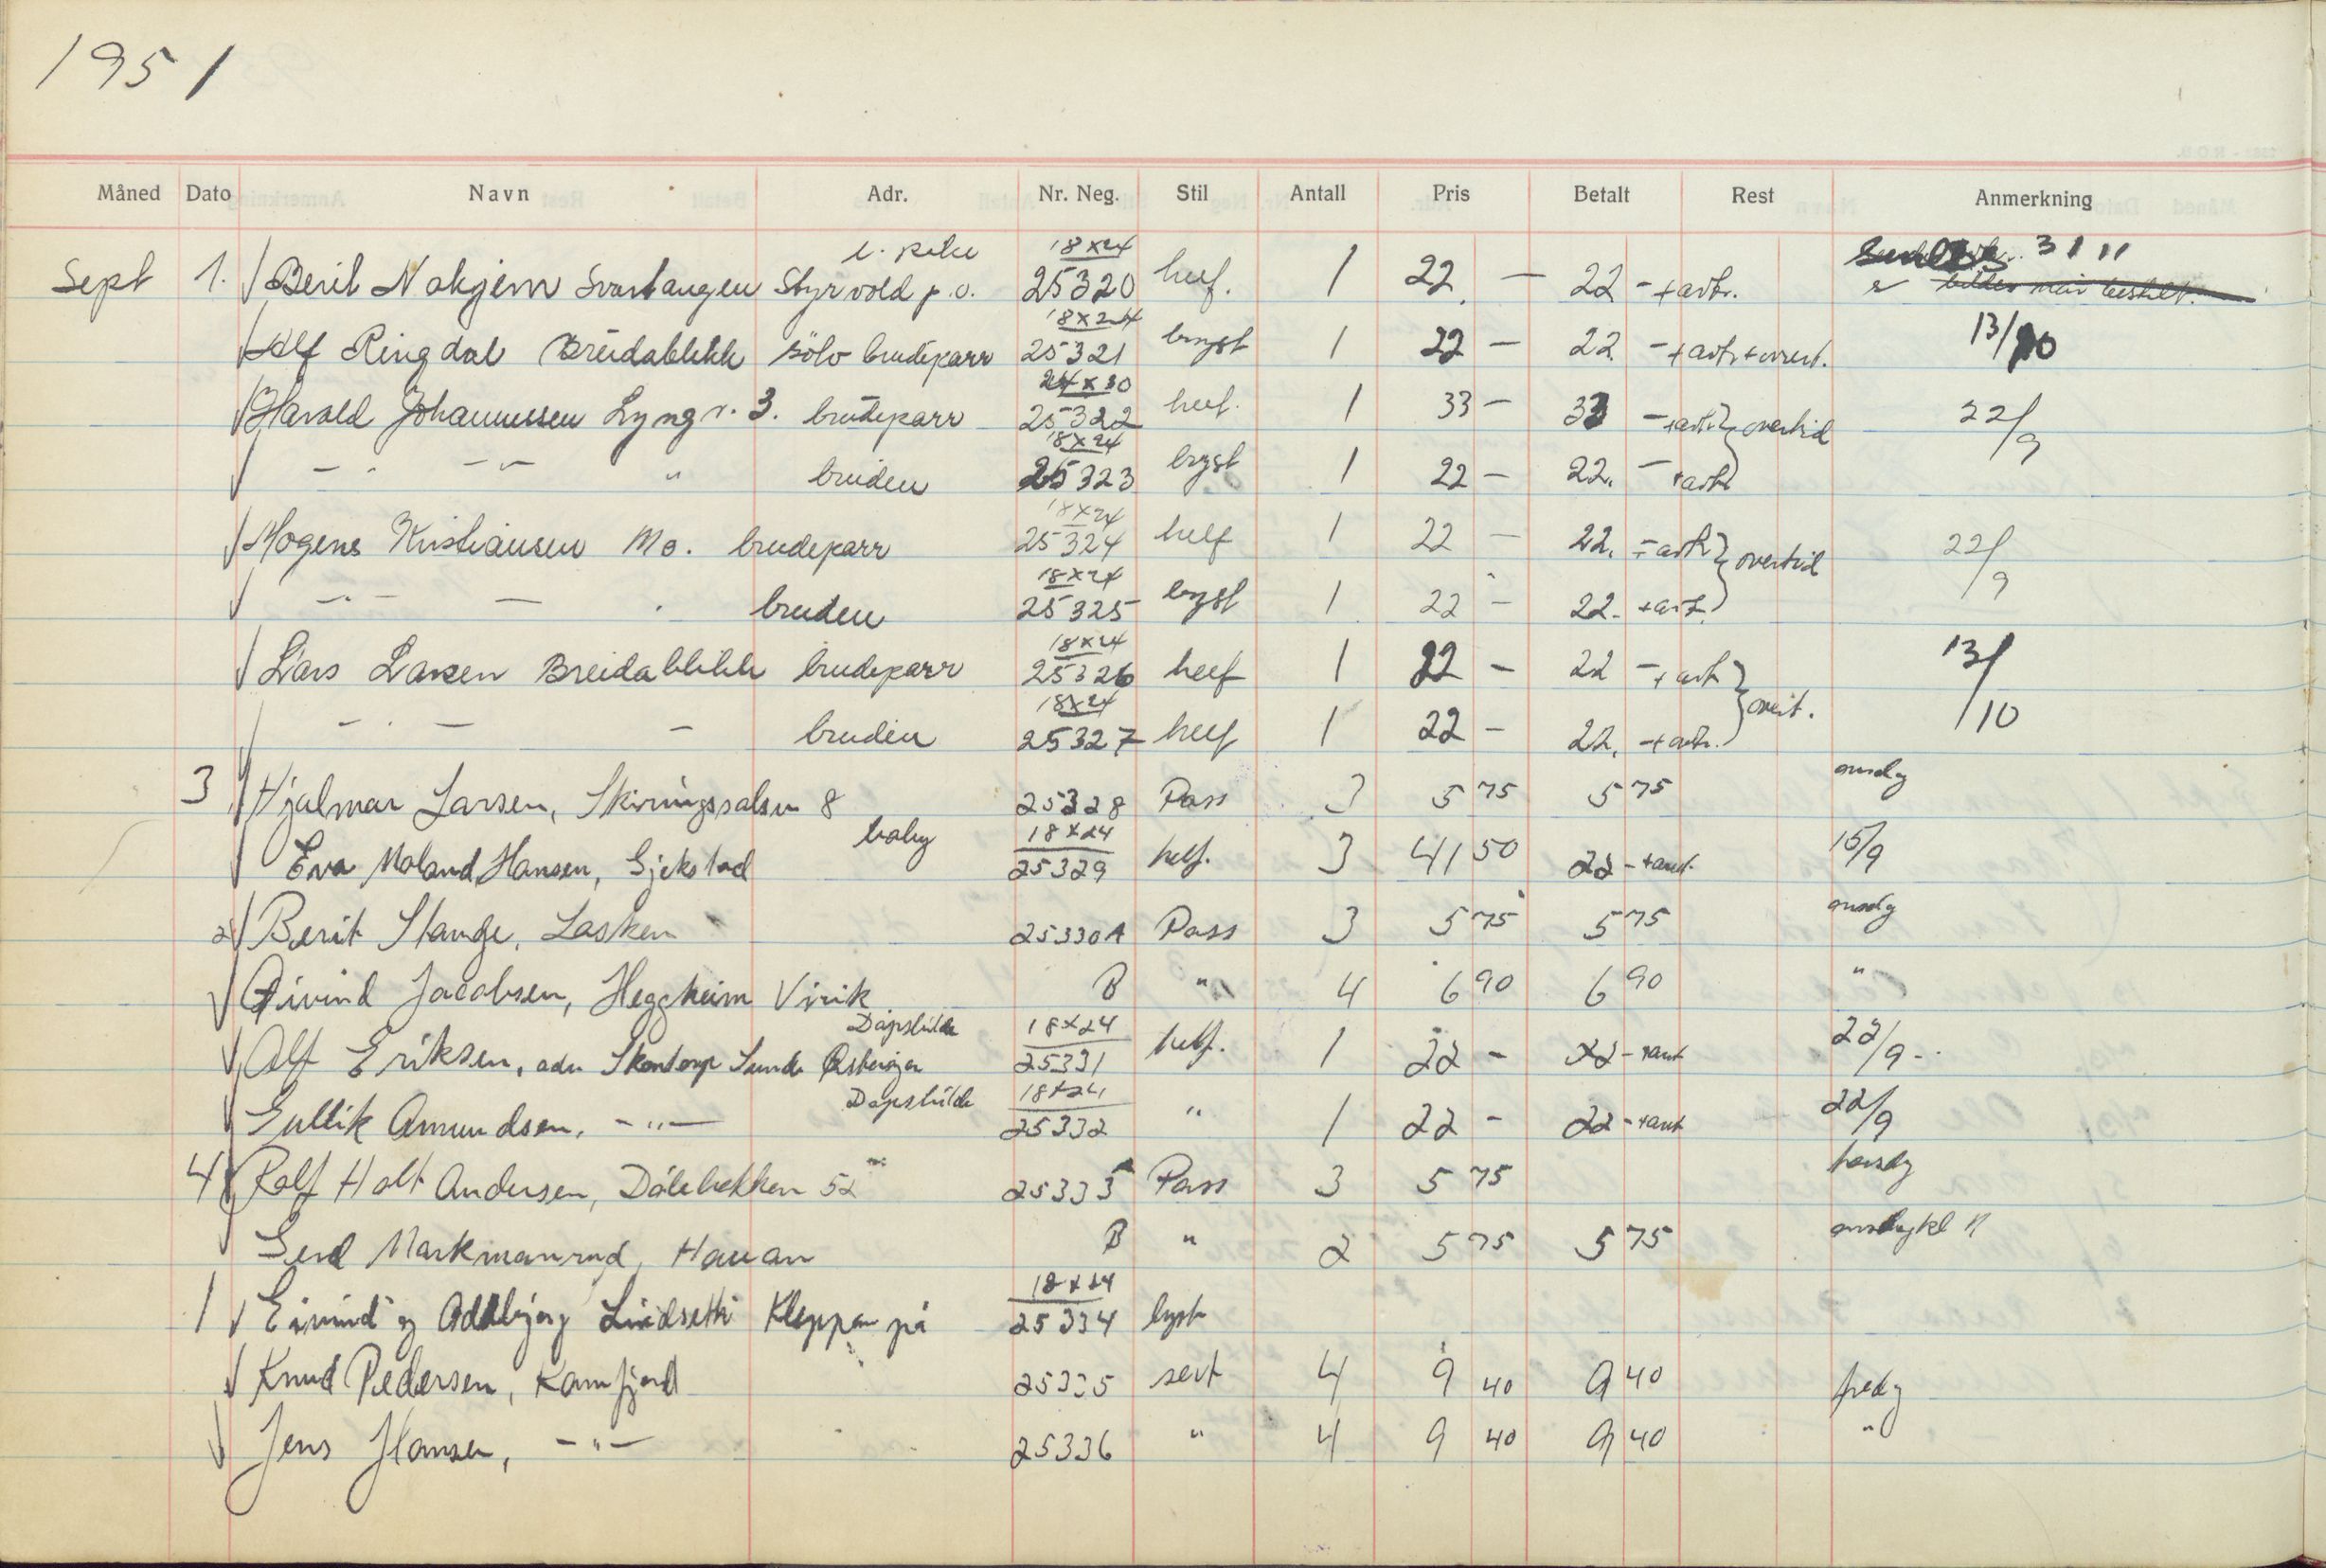 1951
Måned Dato Navn Adr. Nr. Neg. Stil Antall Pris Betalt Rest Anmerkning
Sept 1. Berit Nakjem Svartangen Styrvold p.o. 18x24 25320 helf. 1 22 - 22 - + avtr. 31 11
Alf Ringdal Breidablikk sölv brudeparr 18x24 25321 bryst 1 22 - 22 - + avtr + overt. 13/10
Harald Johannessen Lyngv. 3. brudeparr 24x30 25322 helf. 1 33 - 33 - + avtr overtid 22/9
- " - - " - " bruden 18x24 25323 bryst 1 22 - 22. - + avtr
Mogens Kristiansen Mo. brudeparr 18x24 25324 helf 1 22 - 22. - + avtr overtid 22/9
- " - - bruden 18x24 25325 bryst 1 22 - 22 - + avtr.
Lars Larsen Breidablikk brudeparr 18x24 25326 helf 1 22 - 22 - + avtr overt. 13/10
- " - - bruden 18x24 25327 helf 1 22 - 22. - + avtr.
3 Hjalmar Larsen, Skiringssalsvn 8 25328 Pass 3 5 75 5 75 onsdg
Eva Moland Hansen, Gjekstad baby 18x24 25329 helf. 3 41 50 22 - + avt. 15/9
Berit Stange, Lasken 25330 A Pass 3 5 75 5 75 onsdg
Øivind Jacobsen, Heggheim Virik B " 4 6 90 6 90 "
Alf Eriksen, adr. Skontorp Sunde Dåpsbilde 18x24 25331 helf. 1 22 - 22 - + avt 22/9 -
Gullik Amundsen, - " - Dåpsbilde 18x24 25332 " 1 22 - 22 - + avt 22/9
4 Rolf Holt Andersen, Dølebekken 52 25333 A Pass 3 5 75 torsdg
Gerd Markmanrud, Hauan B " 2 5 75 5 75 onsdag kl 11
1 Eivind og Oddbjørg Lindseth Kleppan på 18x24 25334 bryst
Knud Pedersen, Kamfjord 25335 sert 4 9 40 9 40 fredg
Jens Hansen, - " - 25336 " 4 9 40 9 40 "